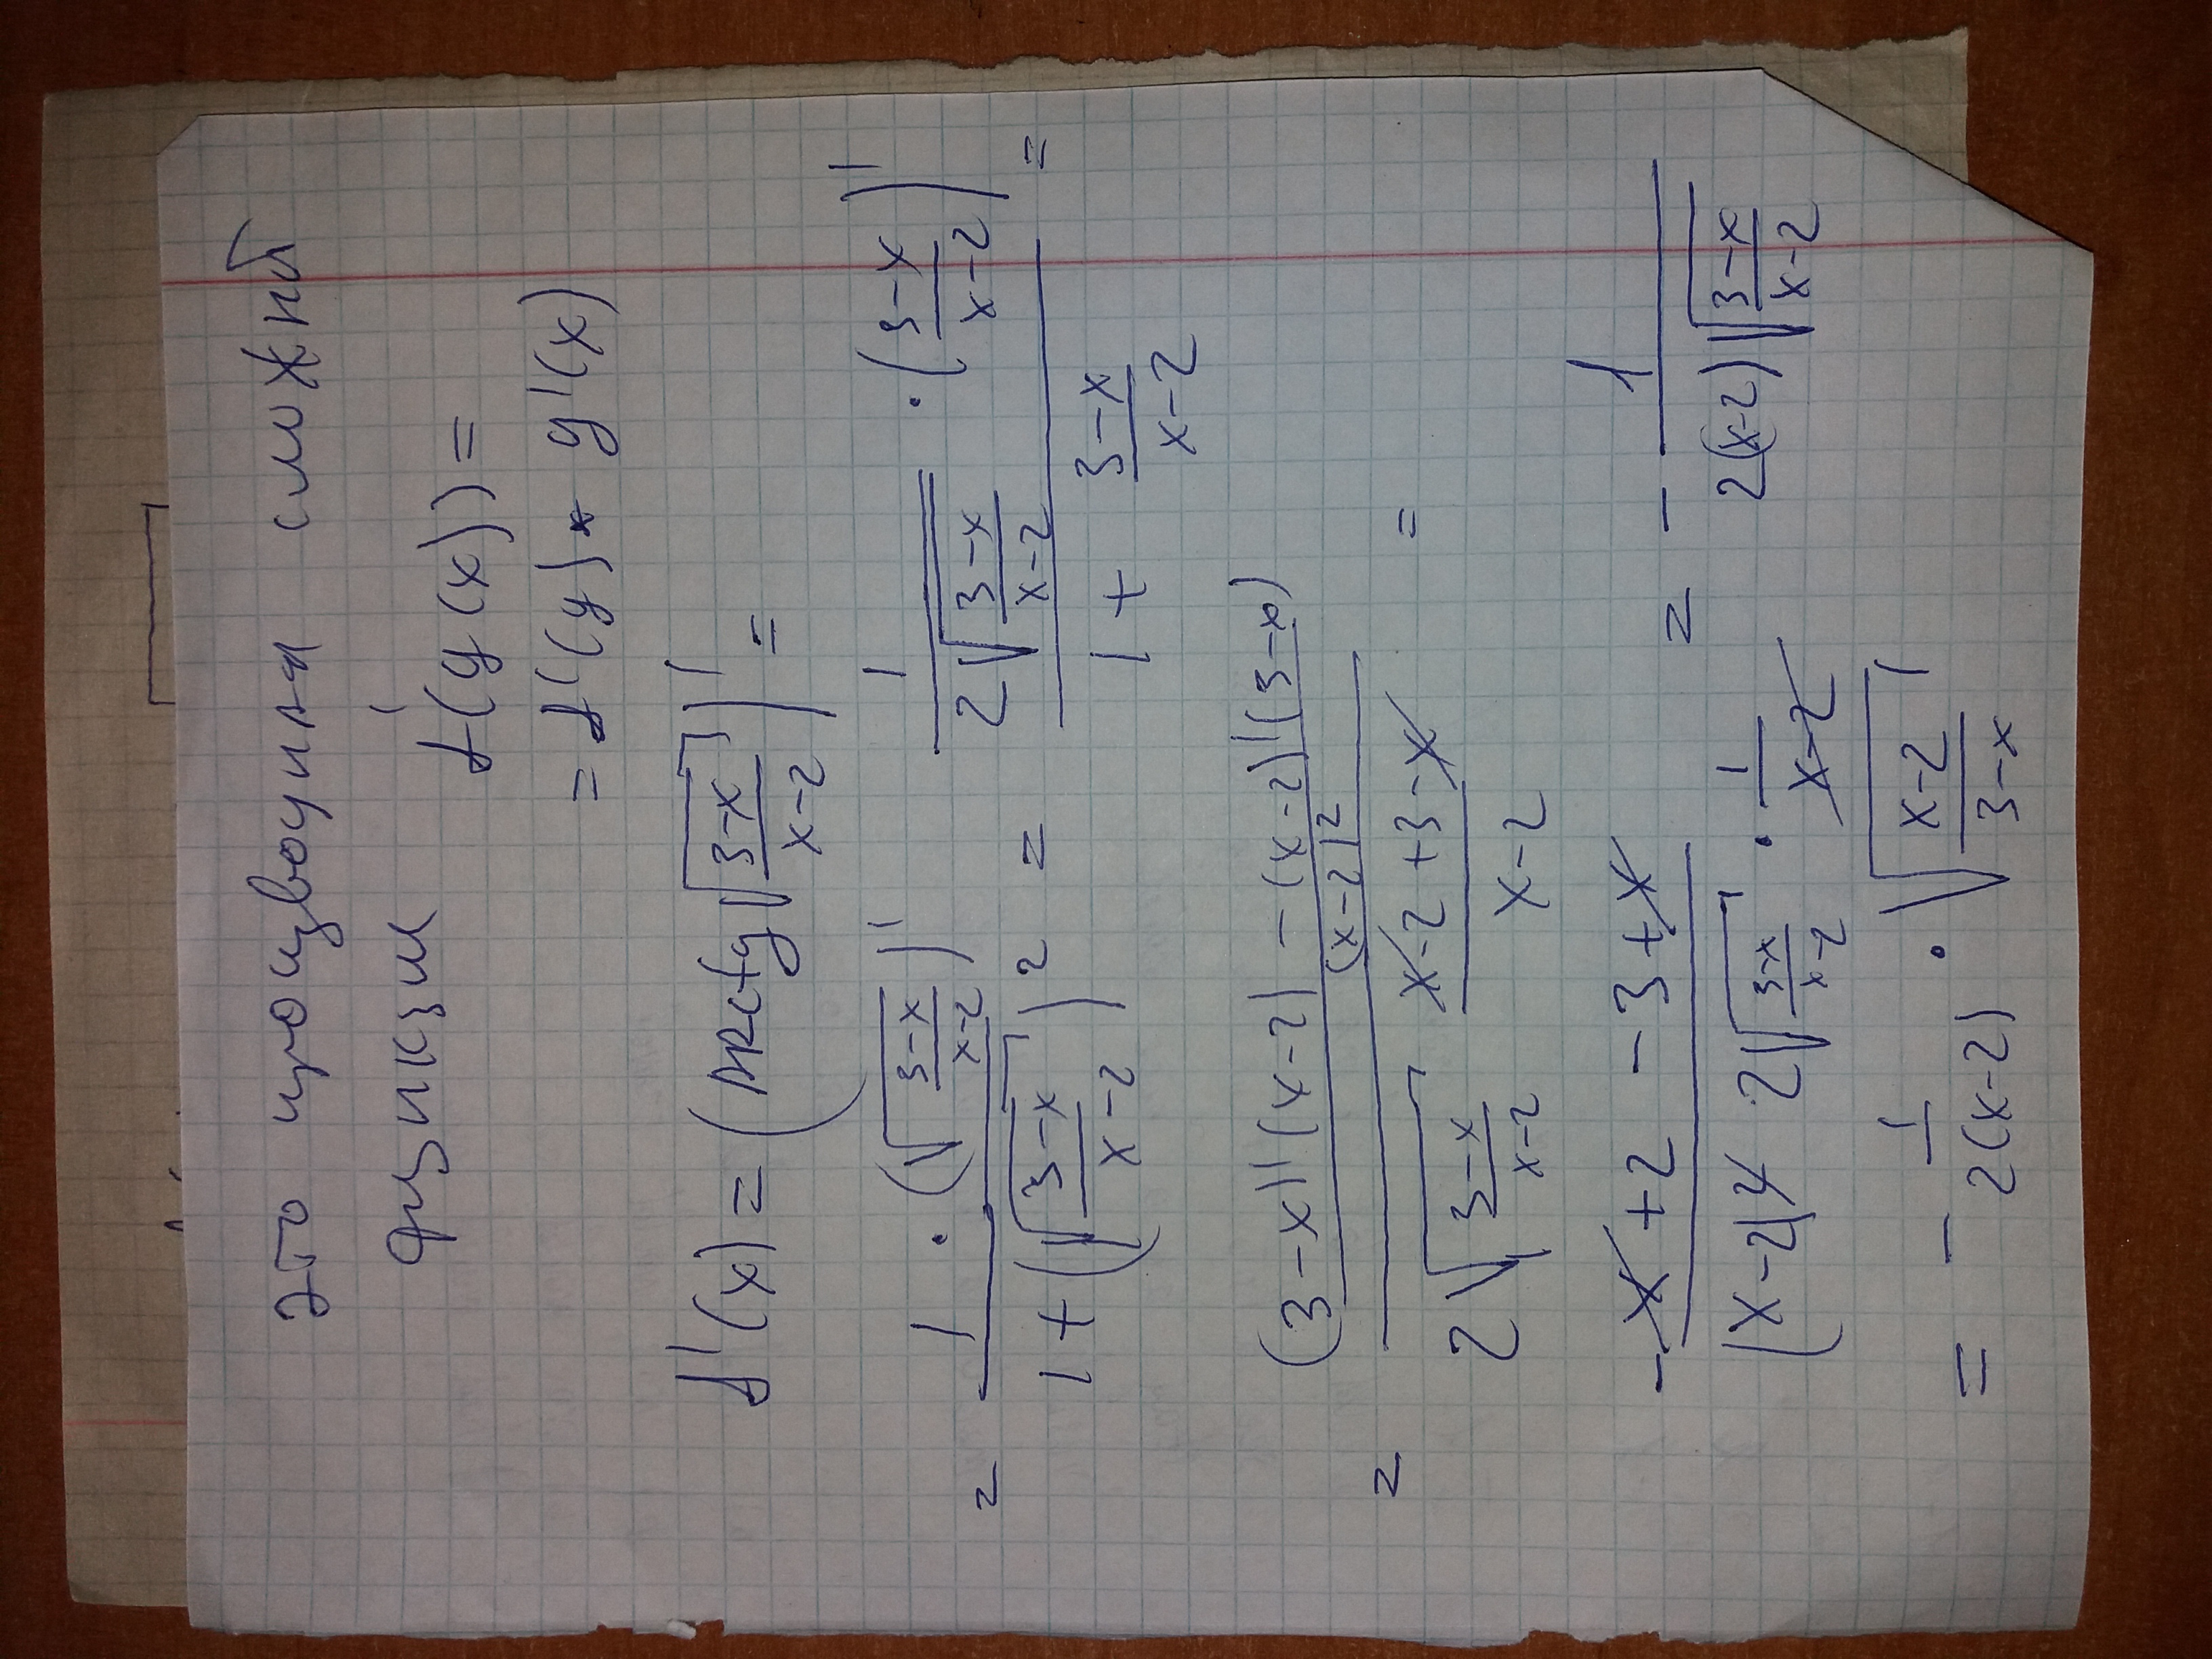 это производная сложной
функзии f'(y(x)) =
= f'(y) * y'(x)
f'(x) = (arctg √((3-x)/(x-2)))' =
= (1 · (√((3-x)/(x-2)))') / (1 + (√((3-x)/(x-2)))²) = ((1 / (2√((3-x)/(x-2)))) · ((3-x)/(x-2))') / (1 + (3-x)/(x-2)) =
= (((3-x)'(x-2) - (x-2)'(3-x)) / (x-2)²) / (2√((3-x)/(x-2)) · (x-2+3-x)/(x-2)) =
(-x+2-3+x) / ((x-2)² 2√((3-x)/(x-2)) · 1/(x-2)) = - 1 / (2(x-2)√((3-x)/(x-2)))
= - 1/(2(x-2)) · √((x-2)/(3-x))